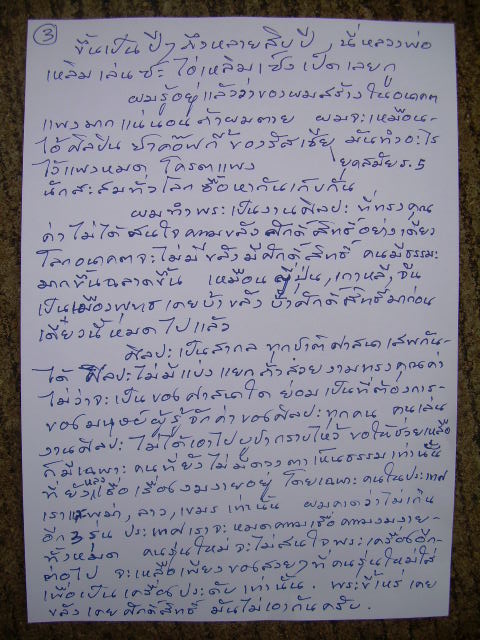 3
ขึ้นเป็นปีๆ ถึงหลายสิบปี, นี่หลวงพ่อ
เหลิมเล่นซะ ไอ่เหลิมเซ็งเป็ดเลยกู
ผมรู้อยู่แล้วว่าของผมสร้างในอนาคต
แพงมากแน่นอนถ้าผมตาย ผมจะเหมือน-
ไอ้ศิลปิน ฟาค๊อฟกี้ของรัสเซีย มันทำอะไร
ไว้แพงหมด โครตแพง ยุคสมัยร.5
นักสะสมทั่วโลก ซื้อหากันเก็บกัน
ผมทำพระเป็นงานศิลปะ ที่ทรงคุณ
ค่า ไม่ได้สนใจความขลังศักดิ์สิทธิ์อย่างเดียว
โลกอนาคตจะไม่มีขลังมีศักดิ์สิทธิ์ คนมีธรรมะ
มากขึ้นฉลาดขึ้น เหมือนญี่ปุ่น, เกาหลี, จีน
เป็นเมืองพุทธ เคยบ้าขลัง บ้าศักดิ์สิทธิ์มาก่อน
เดี๋ยวนี้หมดไปแล้ว
ศิลปะเป็นสากล ทุกชาติศาสนาเสพกัน-
ได้ ศิลปะไม่มีแบ่งแยก ถ้าสวยงามทรงคุณค่า
ไม่ว่าจะเป็นของศาสนาใด ย่อมเป็นที่ต้องการ-
ของมนุษย์ผู้รู้จักค่าของศิลปะทุกคน คนเล่น
งานศิลปะ ไม่ได้เอาไปบูชากราบไหว้ ขอให้ช่วยเหลือ
ก็มีเฉพาะคนที่ยังไม่มีดวงตาเห็นธรรมเท่านั้น
ที่ยังหลงเชื่อเรื่องงมงายอยู่ โดยเฉพาะคนในประเทศ
เรา พม่า, ลาว, เขมร เท่านั้น ผมคาดว่าไม่เกิน
อีก 3 รุ่น ประเทศเราจะหมดความเชื่อความงมงาย-
ทั้งหมด คนรุ่นใหม่จะไม่สนใจพระเครื่องอีก-
ต่อไป จะเหลือเพียงของสวยๆที่คนรุ่นใหม่ใส่
เพื่อเป็นเครื่องประดับเท่านั้น. พระขี้เหร่ เคย
ขลังเคยศักดิ์สิทธิ์ มันไม่เอากันครับ.